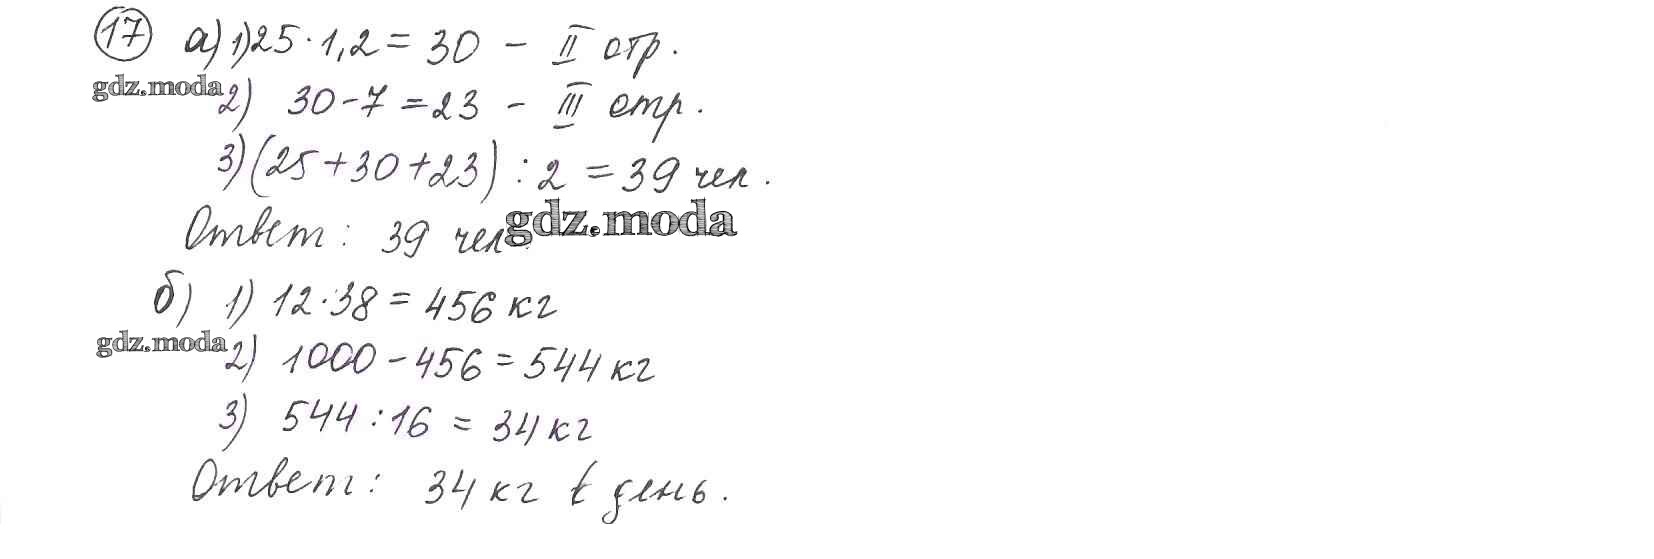 17 а) 1) 25 · 1,2 = 30 - II стр.
gdz.moda
2) 30 - 7 = 23 - III стр.
3) (25 + 30 + 23) : 2 = 39 чел.
Ответ: 39 чел.
gdz.moda
б) 1) 12 · 38 = 456 кг
gdz.moda
2) 1000 - 456 = 544 кг
3) 544 : 16 = 34 кг
Ответ: 34 кг в день.